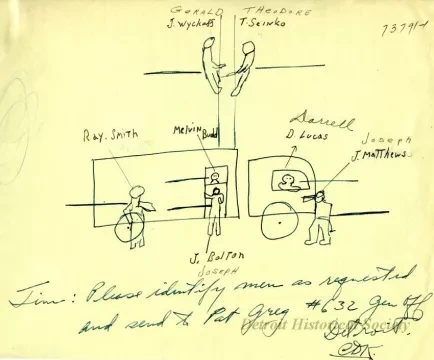 GERALD THEODORE
J. Wyckoff T. Seinko
73791-1
Ray. Smith
Melvin Budd
Darrell
D. Lucas
Joseph
J. Matthews
J. Bolton
JOSEPH
Jim: Please identify men as requested
and send to Pat Greg #632 Gen Off
Detroit
Detroit Historical Society